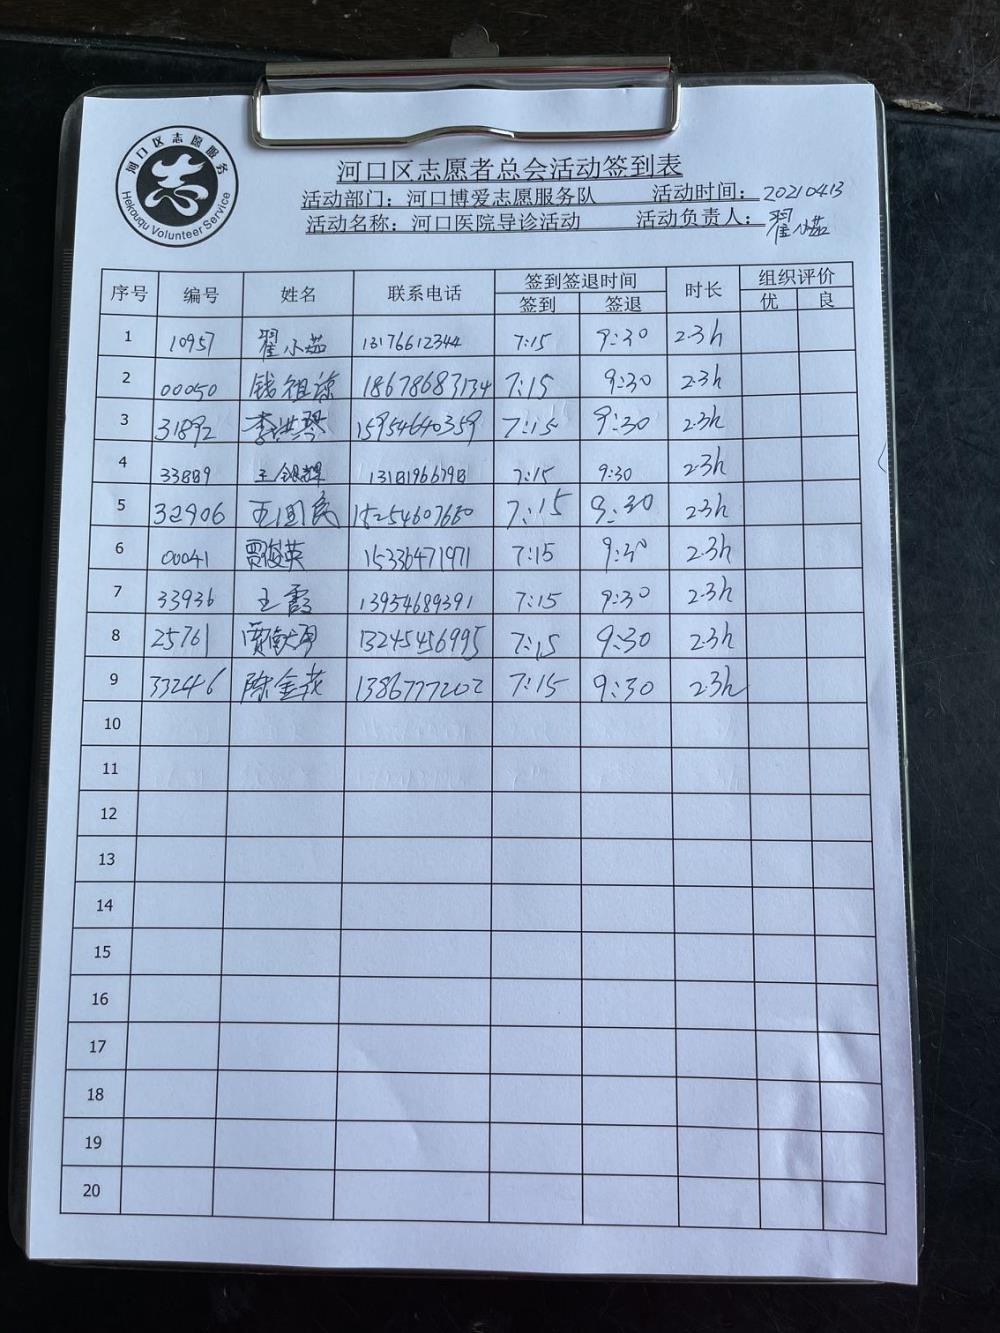 河口区志愿服务
Hekouqu Volunteer Service
志
河口区志愿者总会活动签到表
活动部门：河口博爱志愿服务队 活动时间：20210413
活动名称：河口医院导诊活动 活动负责人：翟小茹
序号 编号 姓名 联系电话 签到签退时间 时长 组织评价
签到 签退 优 良
1 10957 翟小茹 13176612344 7:15 9:30 2.3h
2 00050 钱祖 18678683134 7:15 9:30 2.3h
3 31892 李洪琴 15954640359 7:15 9:30 2.3h
4 33889 王银辉 13181966798 7:15 9:30 2.3h
5 32906 王国民 15254607680 7:15 9:30 2.3h
6 00041 贾俊英 15336471971 7:15 9:30 2.3h
7 33936 王霞 13954689391 7:15 9:30 2.3h
8 25761 13245456995 7:15 9:30 2.3h
9 33246 陈金花 13867777202 7:15 9:30 2.3h
10
11
12
13
14
15
16
17
18
19
20